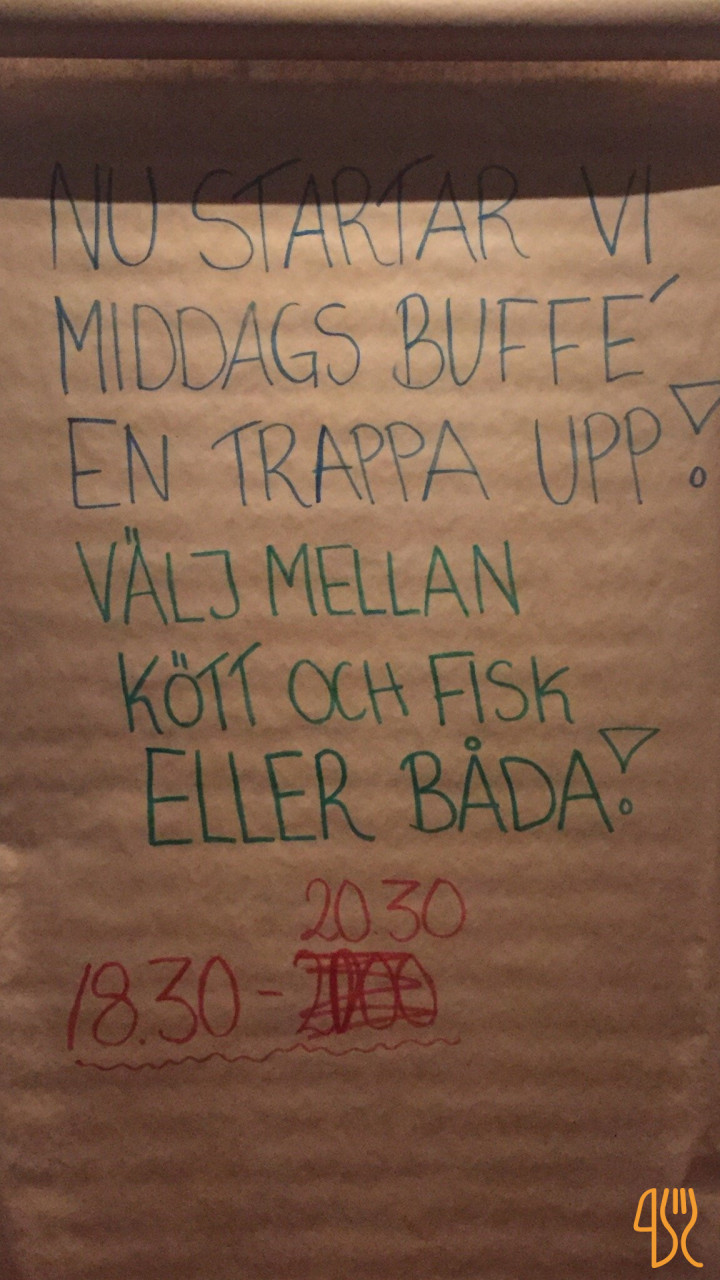 NU STARTAR VI
MIDDAGS BUFFÉ
EN TRAPPA UPP!
VÄLJ MELLAN
KÖTT OCH FISK
ELLER BÅDA!
20.30
18.30 -